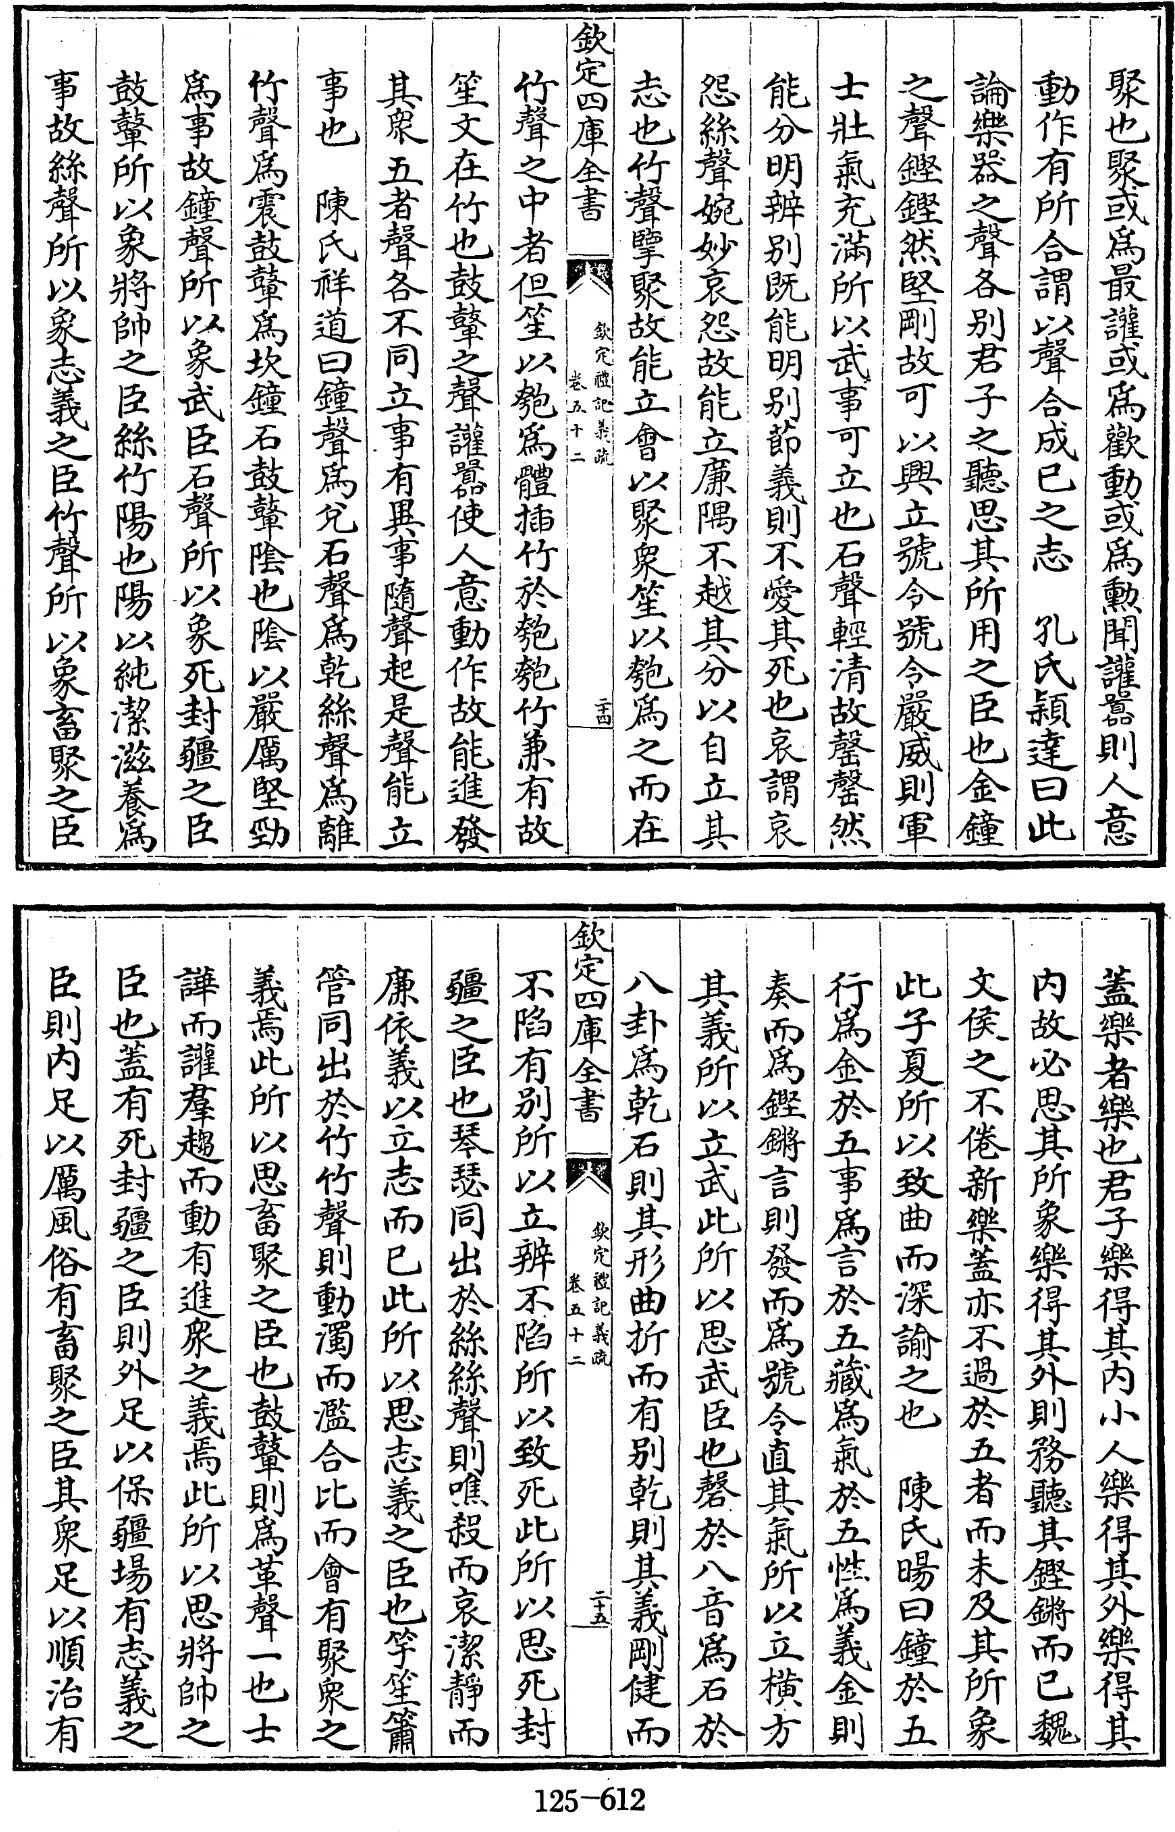 聚也聚或爲最讙或爲歡動或爲勲聞讙囂則人意
動作有所合謂以聲合成已之志　孔氏穎達曰此
論樂器之聲各别君子之聽思其所用之臣也金鐘
之聲鏗鏗然堅剛故可以興立號令號令嚴威則軍
士壯氣充滿所以武事可立也石聲輕清故罄罄然
能分明辨别既能明别節義則不愛其死也哀謂哀
怨絲聲婉妙哀怨故能立廉隅不越其分以自立其
志也竹聲擥聚故能立會以聚衆笙以匏爲之而在
欽定四庫全書
欽定禮記義疏
卷五十二
二十四
竹聲之中者但笙以匏爲體插竹於匏匏竹兼有故
笙文在竹也鼓鼙之聲讙囂使人意動作故能進發
其衆五者聲各不同立事有異事隨聲起是聲能立
事也　陳氏祥道曰鐘聲爲兊石聲爲乾絲聲爲離
竹聲爲震鼓鼙爲坎鐘石鼓鼙隂也隂以嚴厲堅勁
爲事故鐘聲所以象武臣石聲所以象死封疆之臣
鼓鼙所以象將帥之臣絲竹陽也陽以純潔滋養爲
事故絲聲所以象志義之臣竹聲所以象畜聚之臣
蓋樂者樂也君子樂得其内小人樂得其外樂得其
内故必思其所象樂得其外則務聽其鏗鏘而已魏
文侯之不倦新樂蓋亦不過於五者而未及其所象
此子夏所以致曲而深諭之也　陳氏暘曰鐘於五
行爲金於五事爲言於五藏爲氣於五性爲義金則
奏而爲鏗鏘言則發而爲號令直其氣所以立横方
其義所以立武此所以思武臣也磬於八音爲石於
八卦爲乾石則其形曲折而有别乾則其義剛健而
欽定四庫全書
欽定禮記義疏
卷五十二
二十五
不陷有别所以立辨不陷所以致死此所以思死封
疆之臣也琴瑟同出於絲絲聲則噍殺而哀潔靜而
廉依義以立志而已此所以思志義之臣也竽笙簫
管同出於竹竹聲則動濁而濫合比而會有聚衆之
義焉此所以思畜聚之臣也鼓鼙則爲革聲一也士
譁而讙羣趨而動有進衆之義焉此所以思將帥之
臣也蓋有死封疆之臣則外足以保疆場有志義之
臣則内足以厲風俗有畜聚之臣其衆足以順治有
125-612